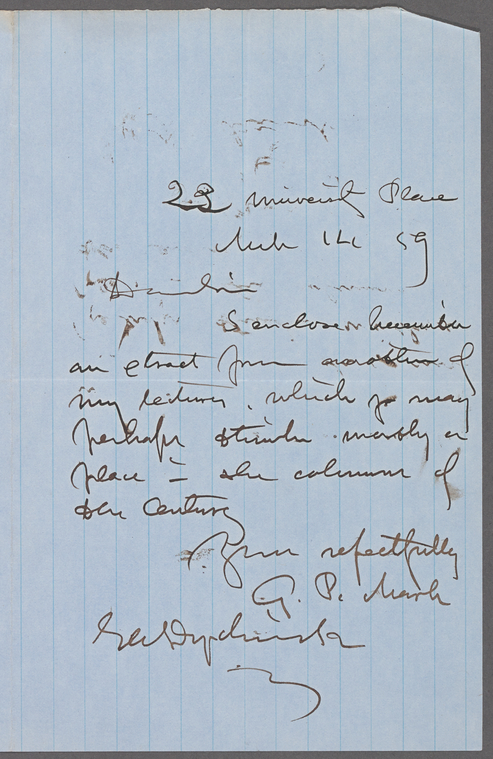 23 University Place
Mch 14 59
Dear Sir
I enclose herewith
an extract from another of
my lectures, which you may
perhaps think worthy a
place in the columns of
the Century
Yours respectfully
G. P. Marsh